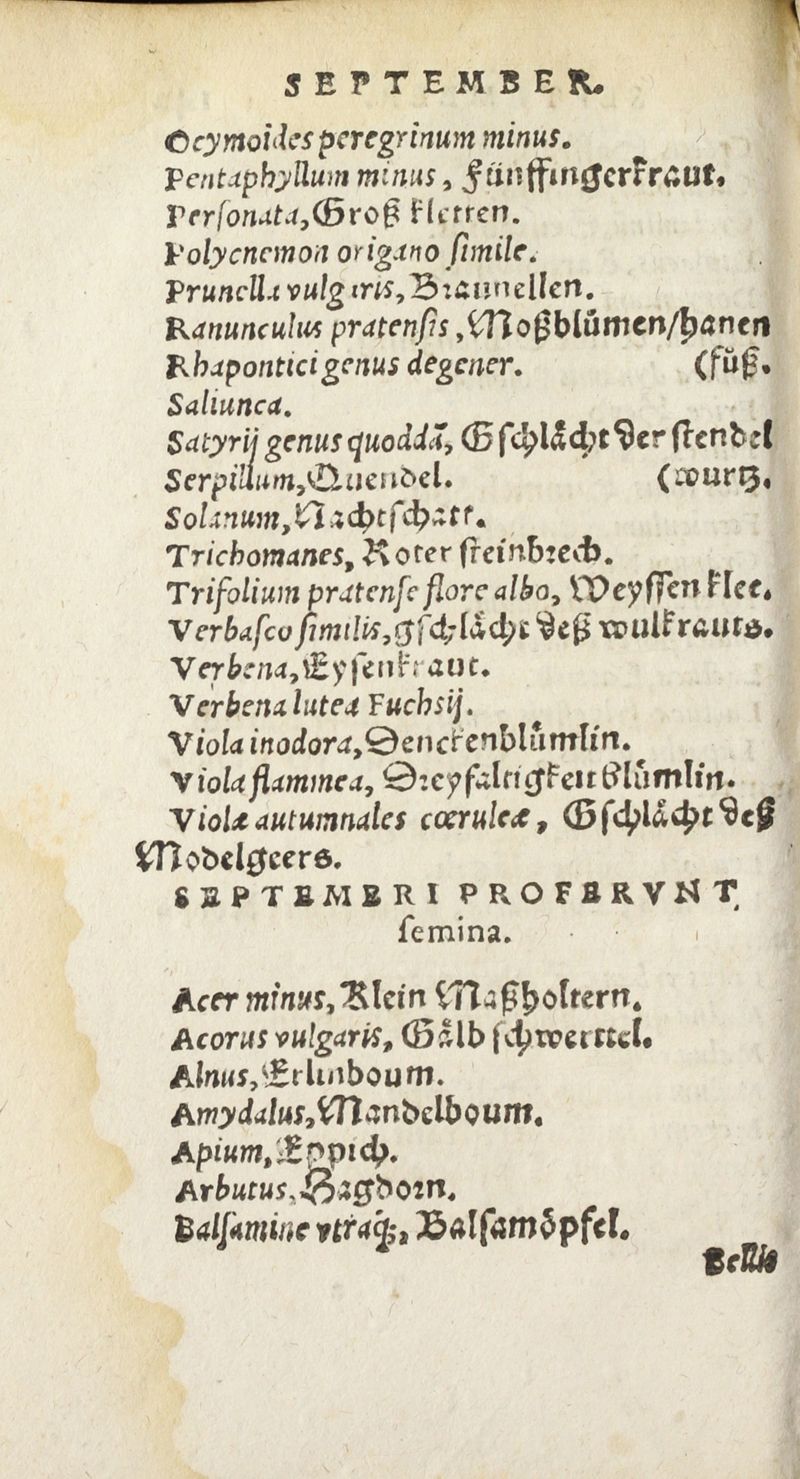 SEPTEMBER.
Ocymoides peregrinum minus.
Pentaphyllum minus, Fünffingerkraut.
Personata, Groß kletten.
Polycnemon origano simile.
Prunella vulgaris, Braunellen.
Ranunculus pratensis, Moßblůmen/hanen
Rhapontici genus degener. (fůß.
Saliunca.
Satyrij genus quoddã, Gschlåcht der stendel
Serpillum, Quendel. (wurtz.
Solanum, Nachtschatt.
Trichomanes, Roter steinbrech.
Trifolium pratense flore albo, Weyssen klee.
Verbasco similis, gschlåcht deß wulkrauts.
Verbena, Eysenkraut.
Verbena lutea Fuchsij.
Viola inodora, Denckenblůmlin.
Viola flammea, Dreyfaltigkeit blůmlin.
Violæ autumnales cœruleæ, Gschlåcht deß
Modelgeers.
SEPTEMBRI PROFERVNT
semina.
Acer minus, Klein Maßholtern.
Acorus vulgaris, Gålb schwerttel.
Alnus, Erlinboum.
Amydalus, Mandelboum.
Apium, Eppich.
Arbutus, Hagdorn.
Balsamine vtraq;, Balsamŏpfel.
Bellis